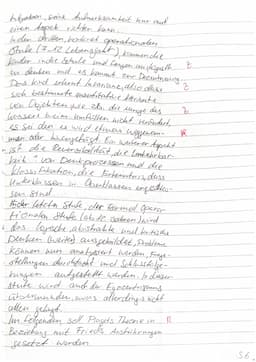 Aufgaben, seine Aufmerksamkeit nur auf
einen Aspekt richten kann.
In der dritten, konkret operationalen
Stufe (7-12 Lebensjahr), kommen die
Kinder in der Schule und fangen an logisch
zu denken und es kommt zur Dezentrierung. Z
Das Kind erkennt Invarianz, also dass
sich bestimmte quantitative Merkmale Z
von Objekten wie z.B. die Menge des
Wassers beim Umfüllen nicht verändert,
es sei denn es wird etwas weggenom- R
men oder hinzugefügt. Ein weiterer Aspekt
ist die Reversibilität, die Umkehrbar-
keit von Denkprozessen und die
Klassifikation, die Erkenntnis, dass
Unterklassen in Oberklassen
sind.
letzten Stufe, der Formal Opera-
tionalen Stufe (ab 12 Jahren) wird
das logische, abstrakte und kritische
Denken (weiter) ausgebildet, Probleme
können nun analysiert werden, Frage-
stellungen durchdacht und Schlussfolge-
rungen aufgestellt werden. In dieser
Stufe wird auch der Egozentrismus
überwunden, was allerdings nicht
allen gelingt.
Im Folgenden soll Piagets Theorie in R
Beziehung mit Frieds Ausführungen
gesetzt werden.
S6